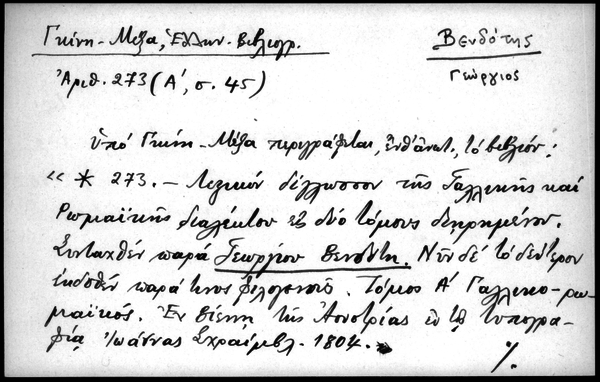 Γκίνη - Μέξα, Ἑλλην. Βιβλιογρ.
Βενδότης
Γεώργιος
Ἀριθ. 273 (Α´, σ. 45)
ὑπό Γκίνη - Μέξα περιγράφεται, ἔνθ' ἀνωτ., τό βιβλίον:
« * 273. — Λεξικόν δίγλωσσον τῆς Γαλλικῆς καί
Ρωμαϊκῆς διαλέκτου εἰς δύο τόμους διηρημένον.
Συνταχθέν παρά Γεωργίου Βενδότη. Νῦν δέ τό δεύτερον
ἐκδοθέν παρά τινος φιλογενοῦς. Τόμος Α´ Γαλλικο-ρω-
μαϊκός. Ἐν Βιέννῃ τῆς Αουστρίας ἐν τῇ τυπογρα-
φίᾳ Ἰωάννας Σχραίμβλ. 1804.»
%